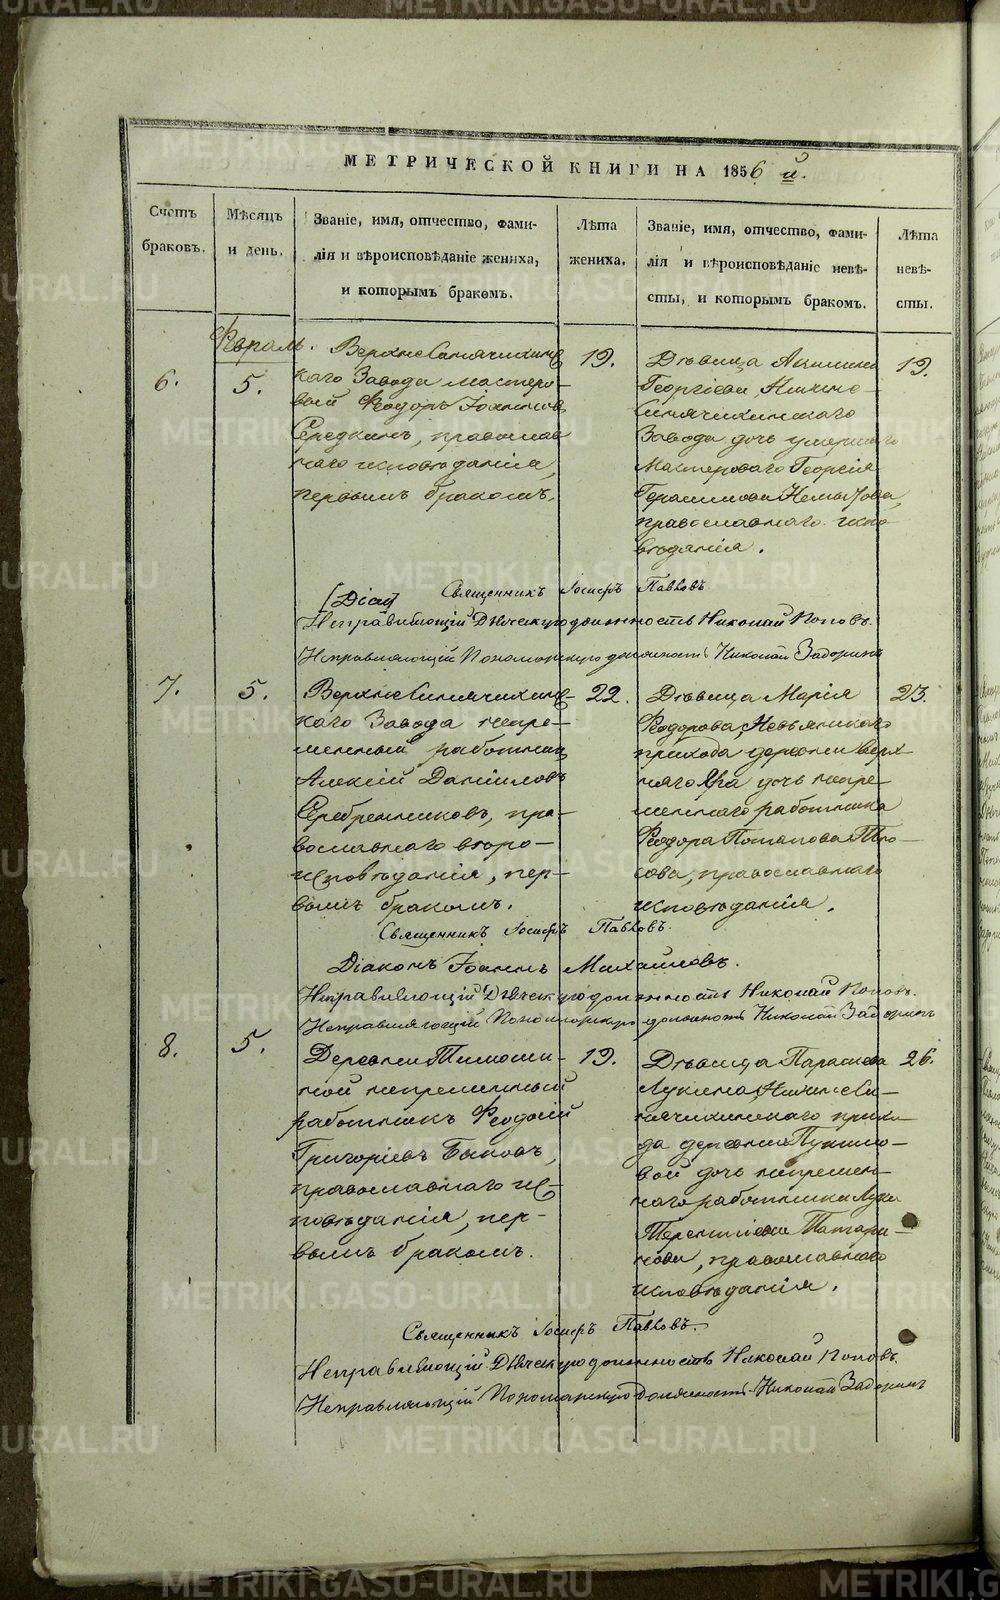 МЕТРИЧЕСКОЙ КНИГИ НА 1856 й.
Счетъ браковъ.
Мѣсяцъ и день.
Званіе, имя, отчество, фами-
лія и вѣроисповѣданіе жениха,
и которымъ бракомъ.
Лѣта жениха.
Званіе, имя, отчество, фами-
лія и вѣроисповѣданіе невѣ-
сты, и которымъ бракомъ.
Лѣта невѣ-
сты.
Февраль.
6.
5.
Верхнесинячихинс-
каго Завода мастеро-
вый Феодоръ Іоанновъ
Середкинъ, православ
наго исповѣданія,
первымъ бракомъ.
19.
Дѣвица
Георгіева, Нижне-
синячихинскаго
Завода дочь умершаго
Мастероваго Георгія
Герасимова
православнаго испо-
вѣданія.
19.
Священникъ Іосифъ Павловъ
[Діак]
Исправляющій Дьяческую должность Николай Поповъ.
Исправляющій Пономарскую должность Николай Задоринъ
7.
5.
Верхнесинячихинс-
каго Завода непре-
менный работник
Алексій Даніиловъ
Серебренниковъ, пра-
вославнаго вѣро-
исповѣданія, пер-
вымъ бракомъ.
22.
Дѣвица Марія
Феодорова, Невьянскаго
прихода деревни Верх-
няго Яра дочь непре-
меннаго работника
Феодора Потапова
православнаго
исповѣданія.
23.
Священникъ Іосифъ Павловъ.
Діаконъ Іоаннъ Михайловъ.
Исправляющій Дьяческую должность Николай Поповъ.
Исправляющій Пономарскую должность Николай Задоринъ
8.
5.
Деревни Тимоши-
ной непременный
работникъ Феодосій
Григоріевъ Быковъ,
православнаго ис-
повѣданія, пер-
вымъ бракомъ.
19.
Дѣвица Параскева
Лукина, Нижнеси-
нячихинскаго прихо-
да деревни
вой дочь непремен-
наго работника Луки
Терентіева Татари-
нова, православнаго
исповѣданія.
26.
Священникъ Іосифъ Павловъ.
Исправляющій Дьяческую должность Николай Поповъ.
Исправляющій Пономарскую Должность Николай Задоринъ
METRIKI.GASO-URAL.RU